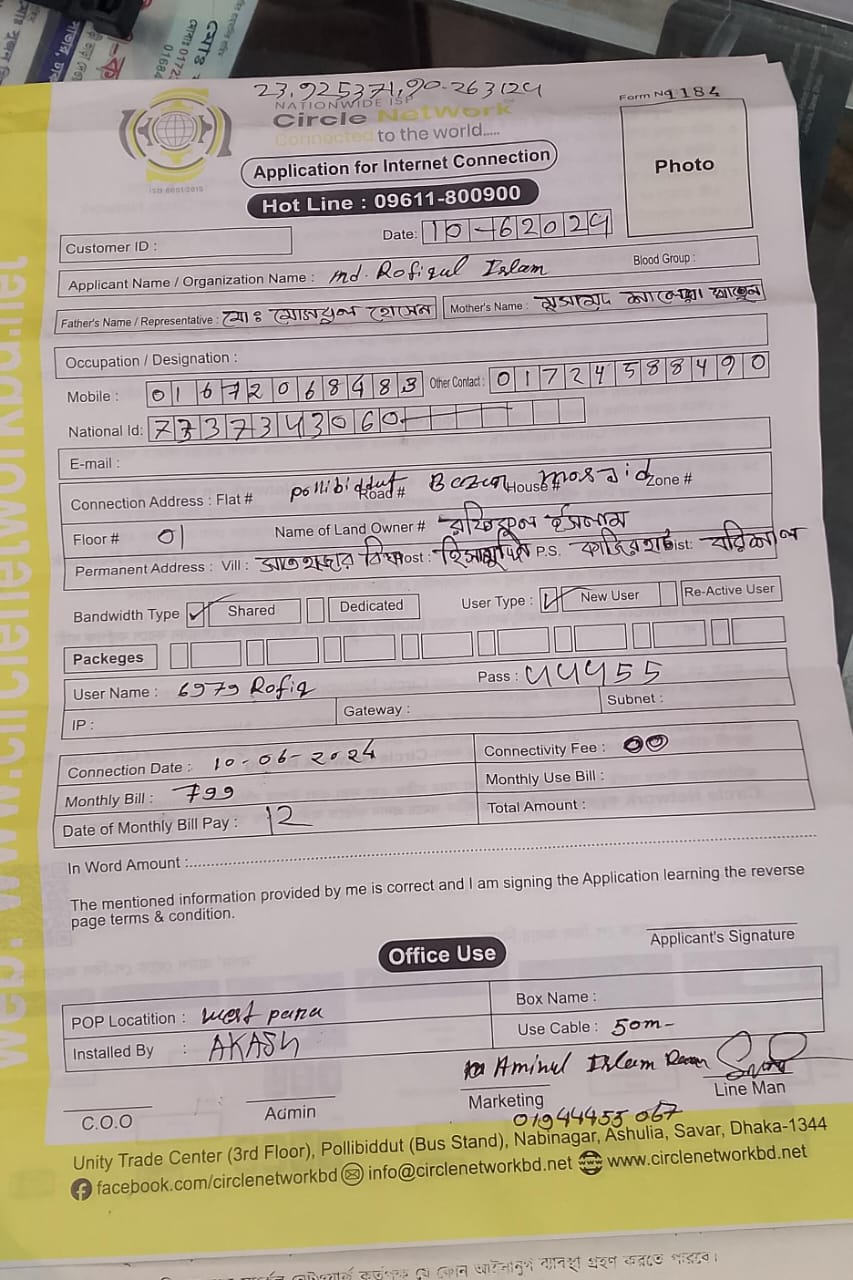 23.925371,90.263124
NATIONWIDE ISP
Form No 1184
Circle Network
Connected to the world.....
Photo
ISO 9001:2015
Application for Internet Connection
Hot Line : 09611-800900
Date: 10-62024
Customer ID :
Applicant Name / Organization Name : md. Rofiqul Islam
Blood Group :
Father's Name / Representative : মোঃ হোসেন Mother's Name :
Occupation / Designation :
Mobile : 01672068483 Other Contact : 01724588490
National Id: 7737343060
E-mail :
Connection Address : Flat # pollibiddut Road # Bazar House # mosjid Zone #
Floor # 01 Name of Land Owner # রফিকুল ইসলাম
Permanent Address : Vill : Post : P.S. কাজিরহাট Dist: বরিশাল
Bandwidth Type ✓ Shared Dedicated User Type : ✓ New User Re-Active User
Packeges
User Name : 6979 Rofiq Pass : 44455
IP : Gateway : Subnet :
Connection Date : 10-06-2024 Connectivity Fee : 00
Monthly Bill : 799 Monthly Use Bill :
Date of Monthly Bill Pay : 12 Total Amount :
In Word Amount :
The mentioned information provided by me is correct and I am signing the Application learning the reverse
page terms & condition.
Applicant's Signature
Office Use
POP Locatition : west para Box Name :
Installed By : AKASH Use Cable : 50m-
Aminul Islam
C.O.O Admin Marketing Line Man
01944455067
Unity Trade Center (3rd Floor), Pollibiddut (Bus Stand), Nabinagar, Ashulia, Savar, Dhaka-1344
facebook.com/circlenetworkbd info@circlenetworkbd.net www.circlenetworkbd.net
web: www.circlenetworkbd.net